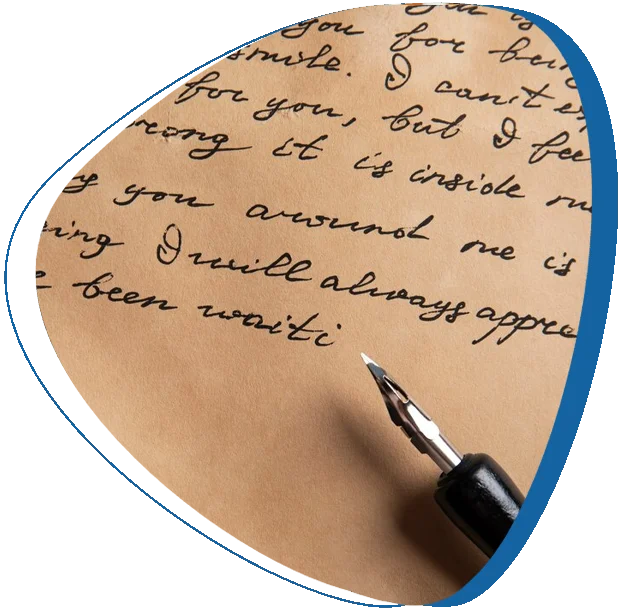 you is
you for bein
smile. I can't ex
for you, but I fee
rong it is inside me
you around me is
ing I will always appre
been waiti